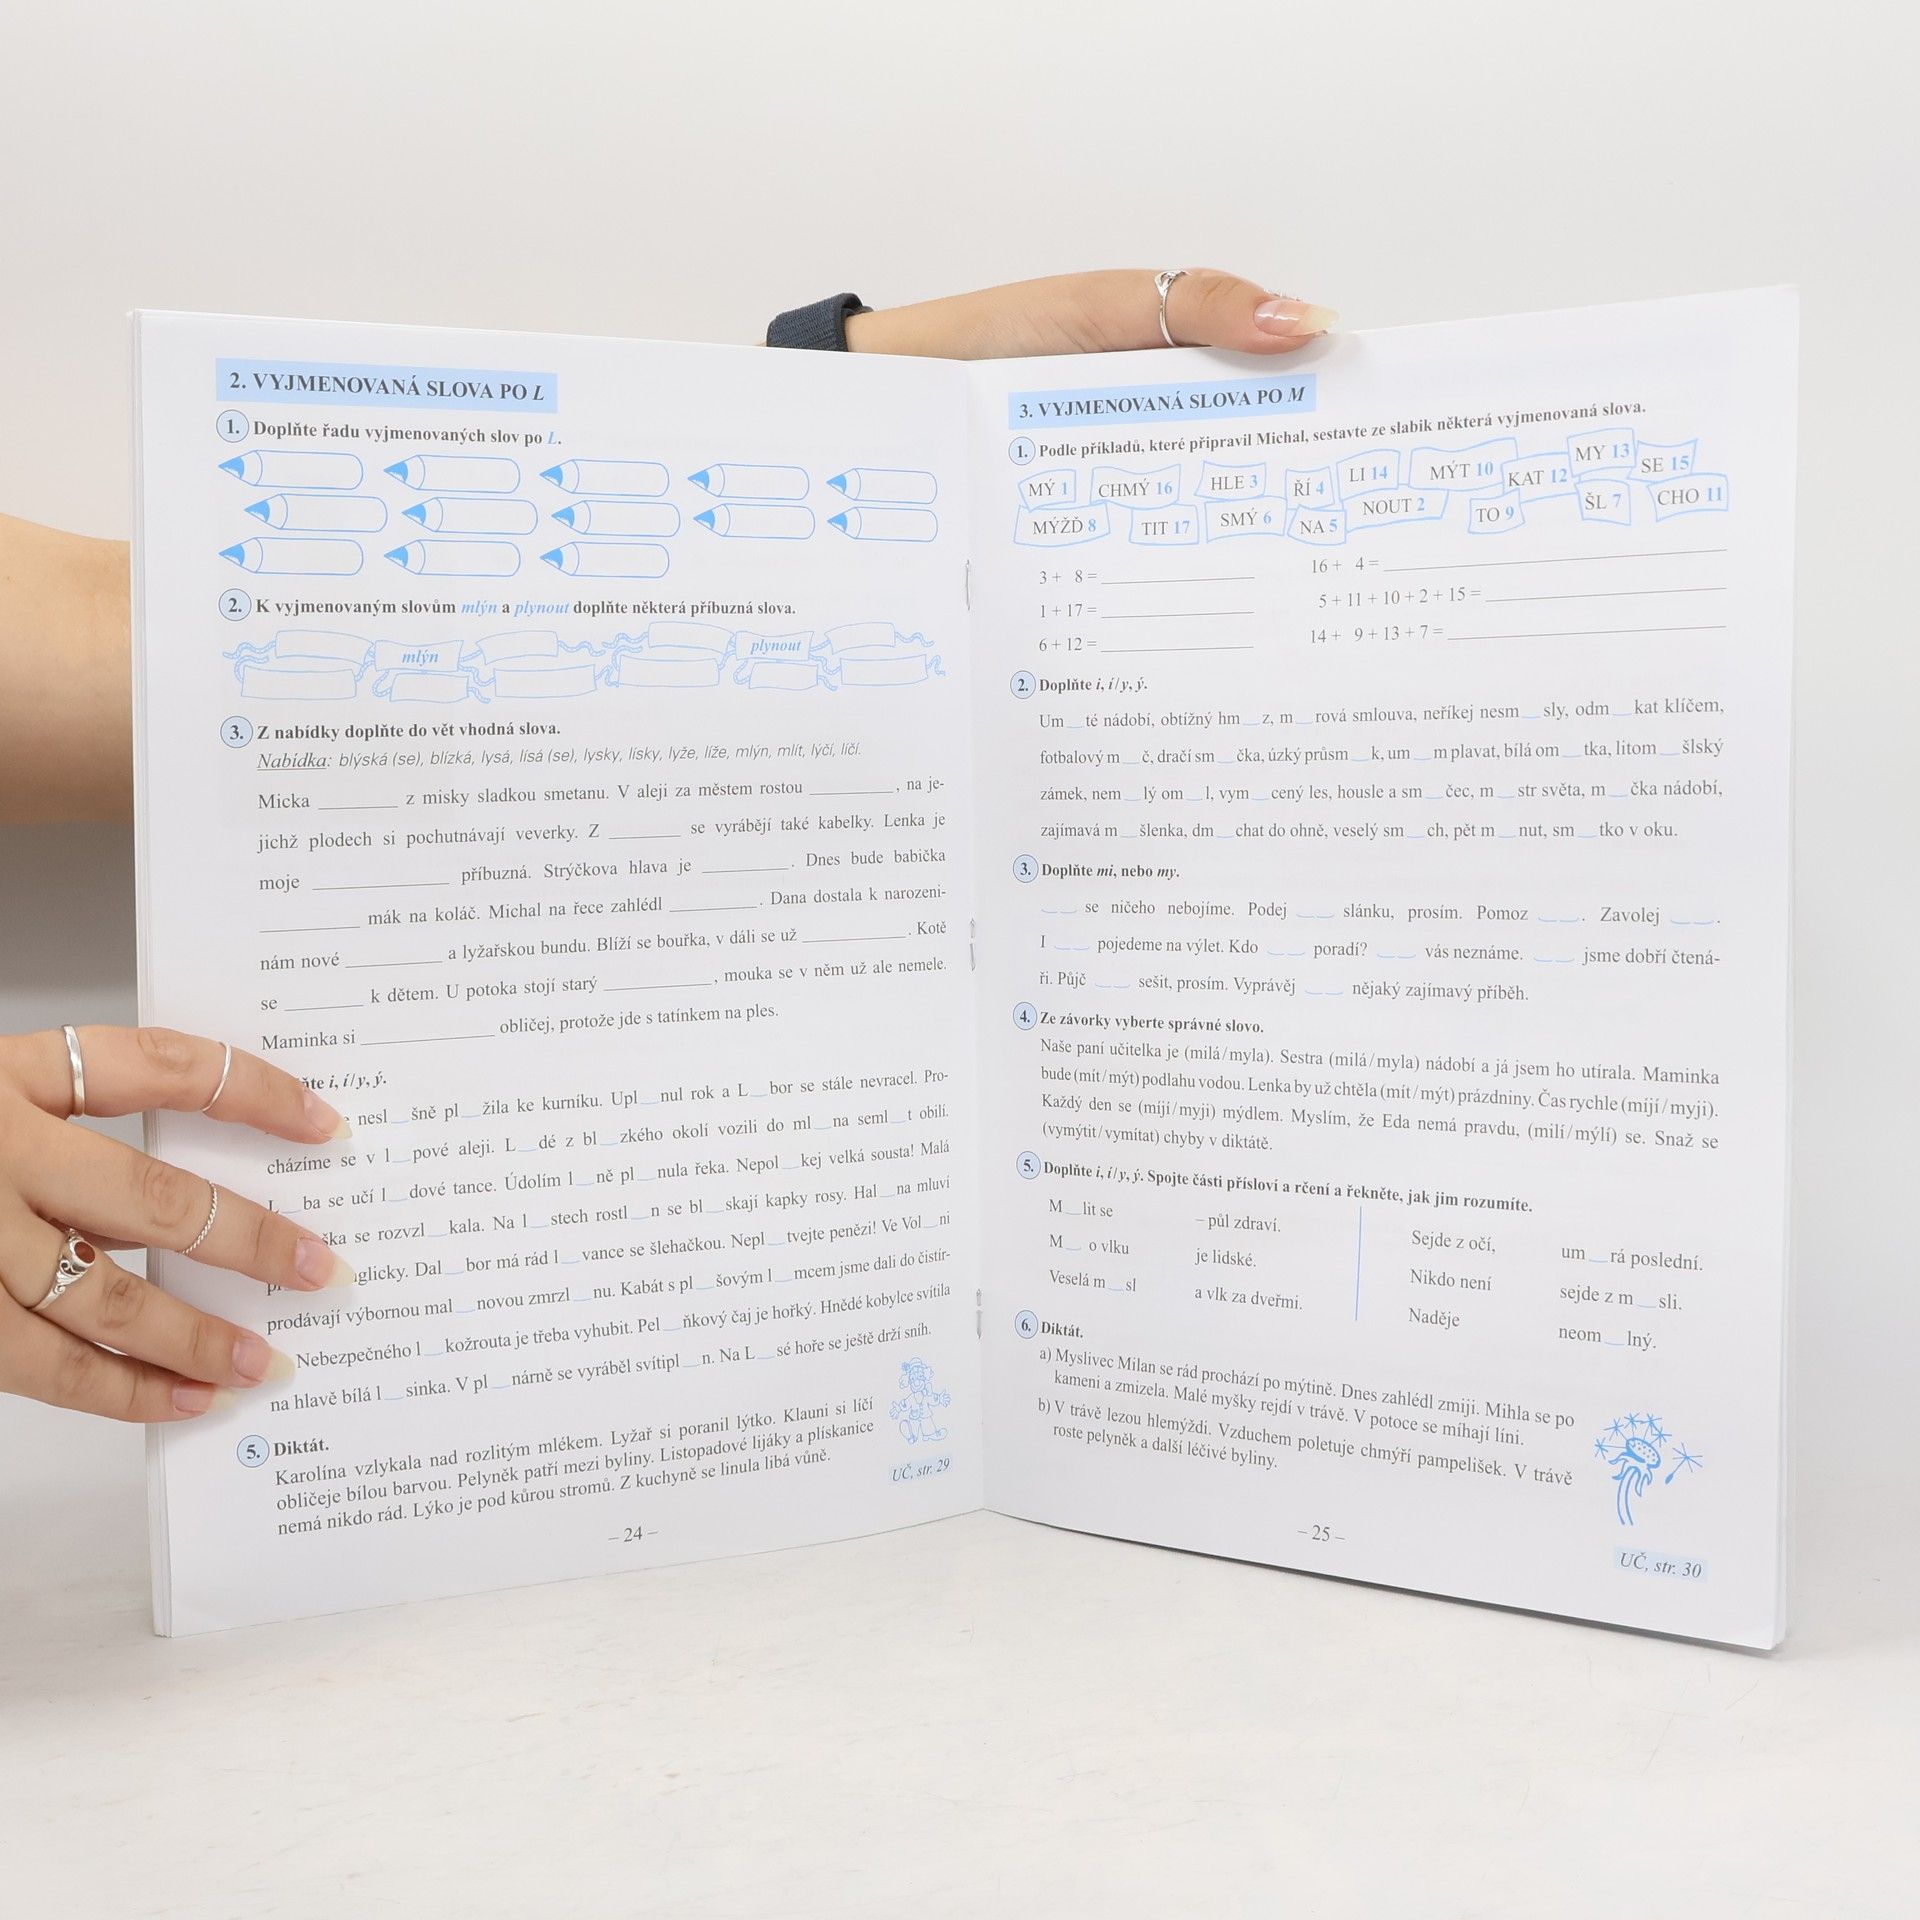 2. VYJMENOVANÁ SLOVA PO L
1. Doplňte řadu vyjmenovaných slov po L.
2. K vyjmenovaným slovům mlýn a plynout doplňte některá příbuzná slova.
mlýn plynout
3. Z nabídky doplňte do vět vhodná slova.
Nabídka: blýská (se), blízká, lysá, lísá (se), lysky, lísky, lyže, líže, mlýn, mlít, lýčí, líčí.
Micka ________ z misky sladkou smetanu. V aleji za městem rostou ________, na je-
jichž plodech si pochutnávají veverky. Z ________ se vyrábějí také kabelky. Lenka je
moje ________ příbuzná. Strýčkova hlava je ________. Dnes bude babička
________ mák na koláč. Michal na řece zahlédl ________. Dana dostala k narozeni-
nám nové ________ a lyžařskou bundu. Blíží se bouřka, v dáli se už ________. Kotě
se ________ k dětem. U potoka stojí starý ________, mouka se v něm už ale nemele.
Maminka si ________ obličej, protože jde s tatínkem na ples.
i, í/y, ý.
nesl_šně pl_žila ke kurníku. Upl_nul rok a L_bor se stále nevracel. Pro-
cházíme se v l_pové aleji. L_dé z bl_zkého okolí vozili do ml_na seml_t obilí.
L_ba se učí l_dové tance. Údolím l_ně pl_nula řeka. Nepol_kej velká sousta! Malá
se rozvzl_kala. Na l_stech rostl_n se bl_skají kapky rosy. Hal_na mluví
anglicky. Dal_bor má rád l_vance se šlehačkou. Nepl_tvejte penězi! Ve Vol_ni
prodávají výbornou mal_novou zmrzl_nu. Kabát s pl_šovým l_mcem jsme dali do čistír-
Nebezpečného l_kožrouta je třeba vyhubit. Pel_ňkový čaj je hořký. Hnědé kobylce svítila
na hlavě bílá l_sinka. V pl_nárně se vyráběl svítipl_n. Na L_sé hoře se ještě drží sníh.
5. Diktát.
Karolína vzlykala nad rozlitým mlékem. Lyžař si poranil lýtko. Klauni si líčí
obličeje bílou barvou. Pelyněk patří mezi byliny. Listopadové lijáky a plískanice
nemá nikdo rád. Lýko je pod kůrou stromů. Z kuchyně se linula libá vůně.
UČ, str. 29
– 24 –
3. VYJMENOVANÁ SLOVA PO M
1. Podle příkladů, které připravil Michal, sestavte ze slabik některá vyjmenovaná slova.
MÝ 1 CHMÝ 16 HLE 3 ŘÍ 4 LI 14 MÝT 10 KAT 12 MY 13 SE 15
MÝŽĎ 8 TIT 17 SMÝ 6 NA 5 NOUT 2 TO 9 ŠL 7 CHO 11
3 + 8 = ________ 16 + 4 = ________
1 + 17 = ________ 5 + 11 + 10 + 2 + 15 = ________
6 + 12 = ________ 14 + 9 + 13 + 7 = ________
2. Doplňte i, í/y, ý.
Um_té nádobí, obtížný hm_z, m_rová smlouva, neříkej nesm_sly, odm_kat klíčem,
fotbalový m_č, dračí sm_čka, úzký průsm_k, um_m plavat, bílá om_tka, litom_šlský
zámek, nem_lý om_l, vym_cený les, housle a sm_čec, m_str světa, m_čka nádobí,
zajímavá m_šlenka, dm_chat do ohně, veselý sm_ch, pět m_nut, sm_tko v oku.
3. Doplňte mi, nebo my.
__ se ničeho nebojíme. Podej __ slánku, prosím. Pomoz __. Zavolej __.
I __ pojedeme na výlet. Kdo __ poradí? __ vás neznáme. __ jsme dobří čtená-
ři. Půjč __ sešit, prosím. Vyprávěj __ nějaký zajímavý příběh.
4. Ze závorky vyberte správné slovo.
Naše paní učitelka je (milá/myla). Sestra (milá/myla) nádobí a já jsem ho utírala. Maminka
bude (mít/mýt) podlahu vodou. Lenka by už chtěla (mít/mýt) prázdniny. Čas rychle (míjí/myji).
Každý den se (míjí/myji) mýdlem. Myslím, že Eda nemá pravdu, (milí/mýlí) se. Snaž se
(vymýtit/vymítat) chyby v diktátě.
5. Doplňte i, í/y, ý. Spojte části přísloví a rčení a řekněte, jak jim rozumíte.
M_lit se – půl zdraví. Sejde z očí, um_rá poslední.
M_ o vlku je lidské. Nikdo není sejde z m_sli.
Veselá m_sl a vlk za dveřmi. Naděje neom_lný.
6. Diktát.
a) Myslivec Milan se rád prochází po mýtině. Dnes zahlédl zmiji. Mihla se po
kameni a zmizela. Malé myšky rejdí v trávě. V potoce se míhají líni.
b) V trávě lezou hlemýždi. Vzduchem poletuje chmýří pampelišek. V trávě
roste pelyněk a další léčivé byliny.
UČ, str. 30
– 25 –